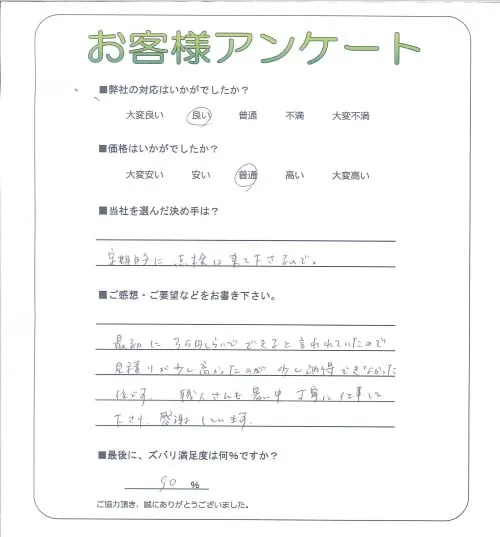 お客様アンケート
■弊社の対応はいかがでしたか?
大変良い 良い 普通 不満 大変不満
■価格はいかがでしたか?
大変安い 安い 普通 高い 大変高い
■当社を選んだ決め手は?
定期的に 点検に来て下さるので。
■ご感想・ご要望などをお書き下さい。
最初に 3万円くらいで できると言われていたので
見積りが少し高かったのが 少し納得できなかった
です。 職人さんも 暑い中 丁寧に仕事して
下さり、感謝しています。
■最後に、ズバリ満足度は何%ですか?
90 %
ご協力頂き、誠にありがとうございました。